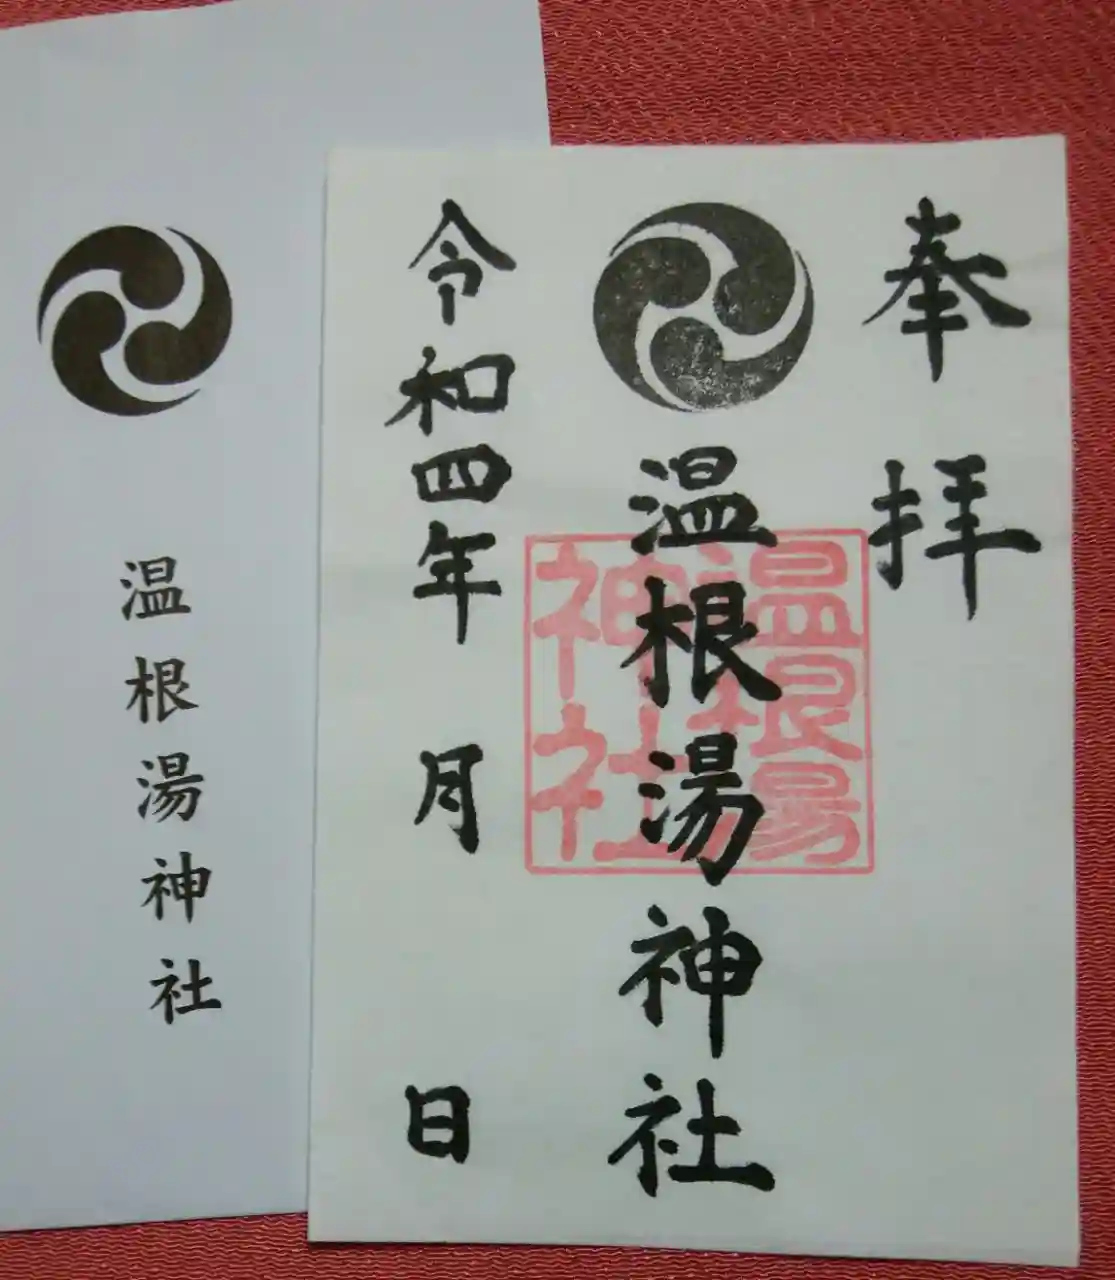 奉拝
温根湯神社
令和四年 月 日
温根湯
神社
温根湯神社